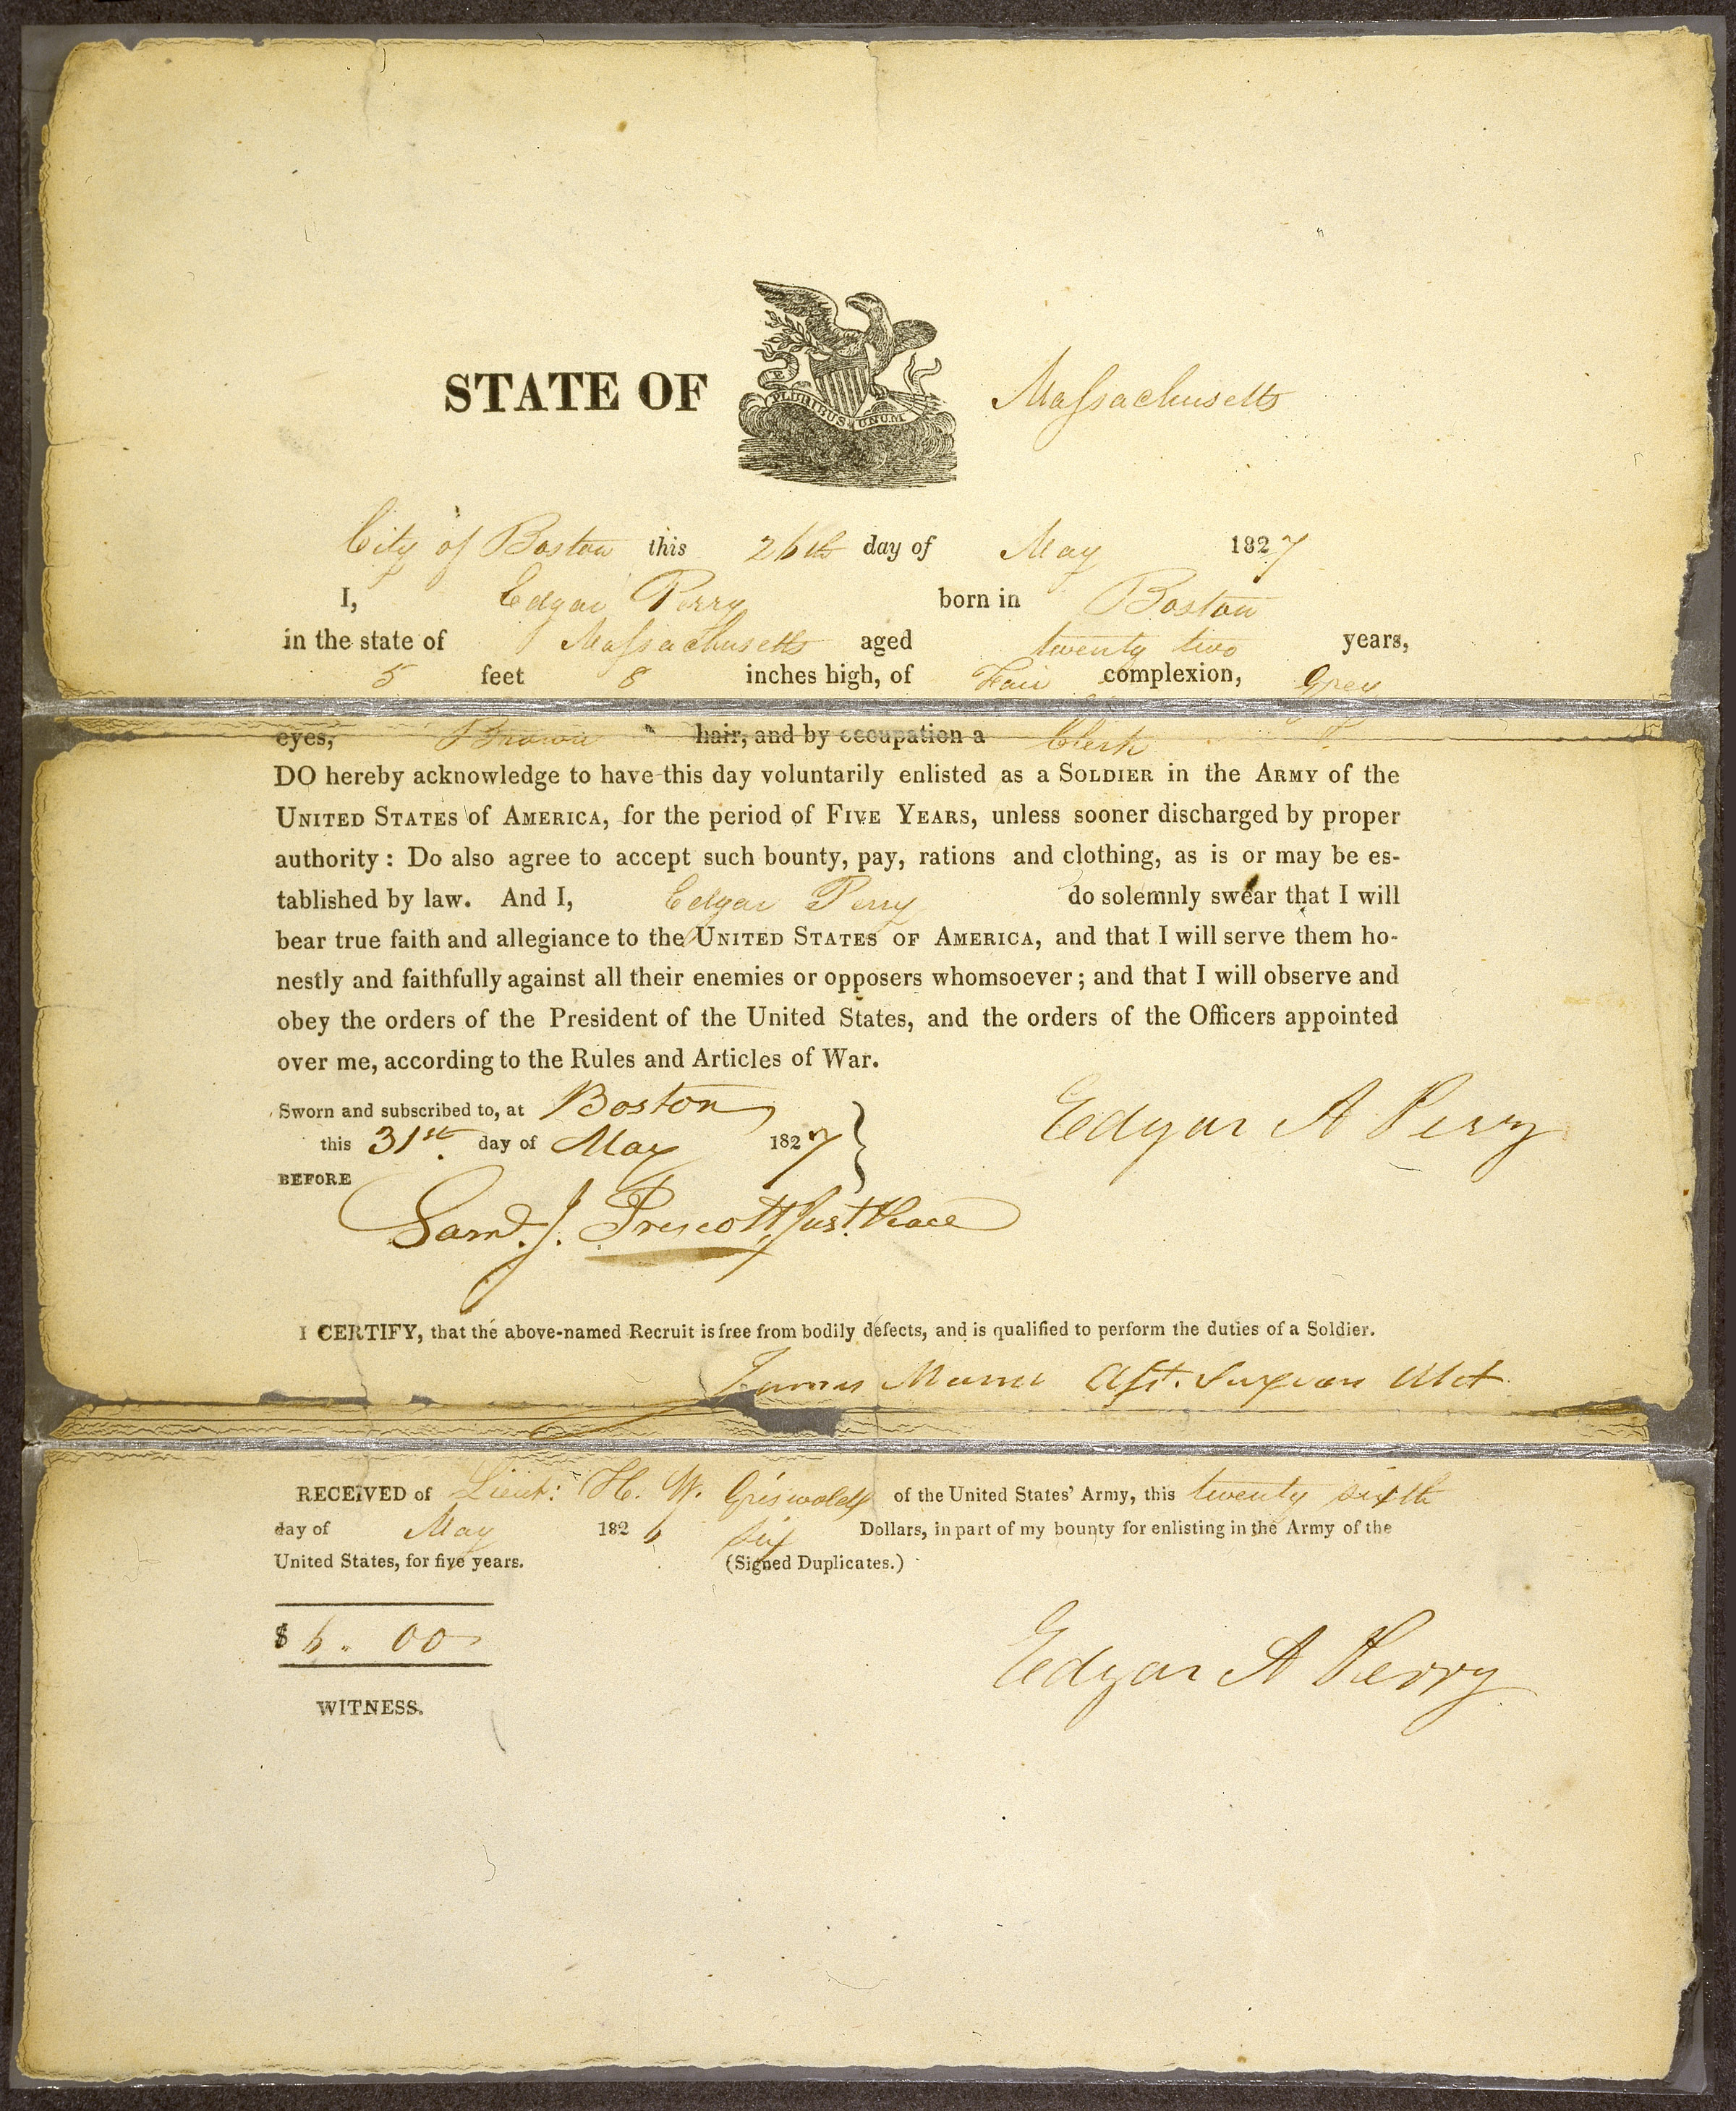 STATE OF Massachusetts
E PLURIBUS UNUM
City of Boston this 26th day of May 1827
I, Edgar Perry born in Boston
in the state of Massachusetts aged twenty two years,
5 feet 8 inches high, of Fair complexion, Grey
eyes, Brown hair, and by occupation a Clerk
DO hereby acknowledge to have this day voluntarily enlisted as a SOLDIER in the ARMY of the
UNITED STATES of AMERICA, for the period of FIVE YEARS, unless sooner discharged by proper
authority: Do also agree to accept such bounty, pay, rations and clothing, as is or may be es-
tablished by law. And I, Edgar Perry do solemnly swear that I will
bear true faith and allegiance to the UNITED STATES OF AMERICA, and that I will serve them ho-
nestly and faithfully against all their enemies or opposers whomsoever; and that I will observe and
obey the orders of the President of the United States, and the orders of the Officers appointed
over me, according to the Rules and Articles of War.
Sworn and subscribed to, at Boston
this 31st day of May 1827 }
Edgar A Perry
BEFORE
Saml. J. Prescott, Just. Peace
I CERTIFY, that the above-named Recruit is free from bodily defects, and is qualified to perform the duties of a Soldier.
James Asst. Surgeon
RECEIVED of Lieut: H. W. Griswold of the United States' Army, this twenty sixth
day of May 182 six Dollars, in part of my bounty for enlisting in the Army of the
United States, for five years. (Signed Duplicates.)
$ 6. 00
Edgar A Perry
WITNESS.